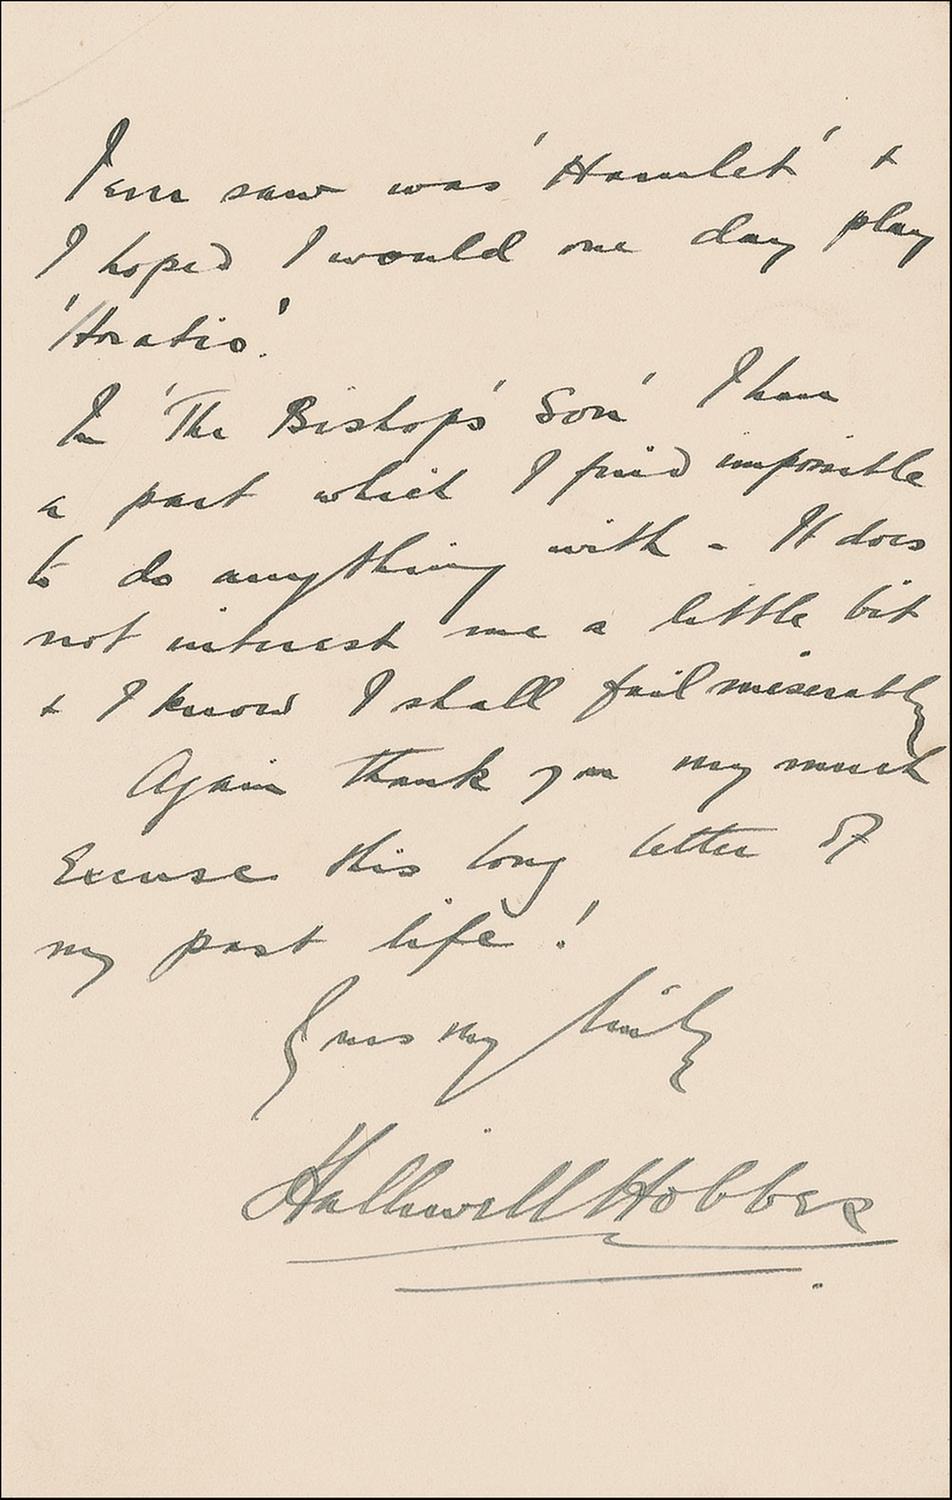 I ever saw was 'Hamlet' +
I hoped I would one day play
'Horatio'.
In 'The Bishop's Son' I have
a part which I find impossible
to do anything with - It does
not interest me a little bit
+ I know I shall fail miserably
Again thank you very much
Excuse this long letter of
my past life!
Yours very sincerely
Halliwell Hobbes